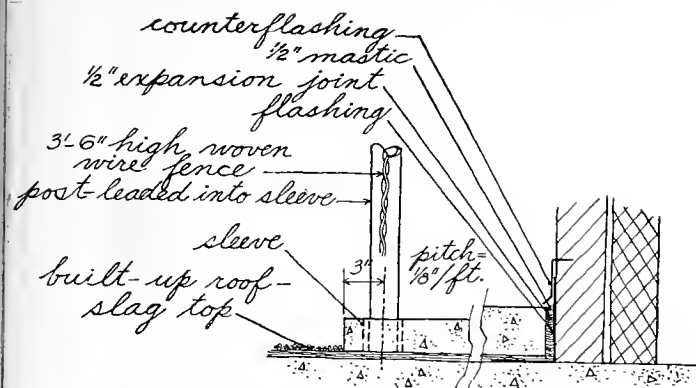 counterflashing
1/2" mastic
1/2" expansion joint
flashing
3'-6" high woven
wire fence
post-leaded into sleeve
sleeve
3"
pitch=
1/8"/ft.
built-up roof-
slag top